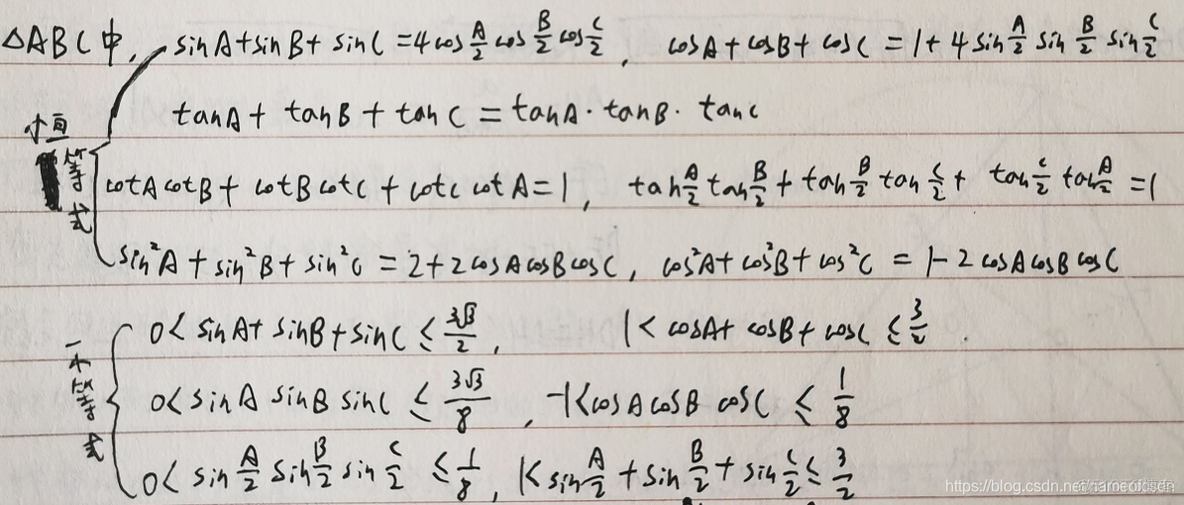 △ABC中, sinA+sinB+sinC=4cos A/2 cos B/2 cos C/2, cosA+cosB+cosC=1+4sin A/2 sin B/2 sin C/2
tanA+tanB+tanC=tanA·tanB·tanC
恒等式
cotAcotB+cotBcotC+cotCcotA=1, tan A/2 tan B/2 + tan B/2 tan C/2 + tan C/2 tan A/2 =1
sin²A+sin²B+sin²C=2+2cosAcosBcosC, cos²A+cos²B+cos²C=1-2cosAcosBcosC
不等式
0<sinA+sinB+sinC≤3√3/2, 1<cosA+cosB+cosC≤3/2.
0<sinA sinB sinC≤3√3/8, -1<cosAcosB cosC≤1/8
0<sin A/2 sin B/2 sin C/2≤1/8, 1<sin A/2+sin B/2+sin C/2≤3/2